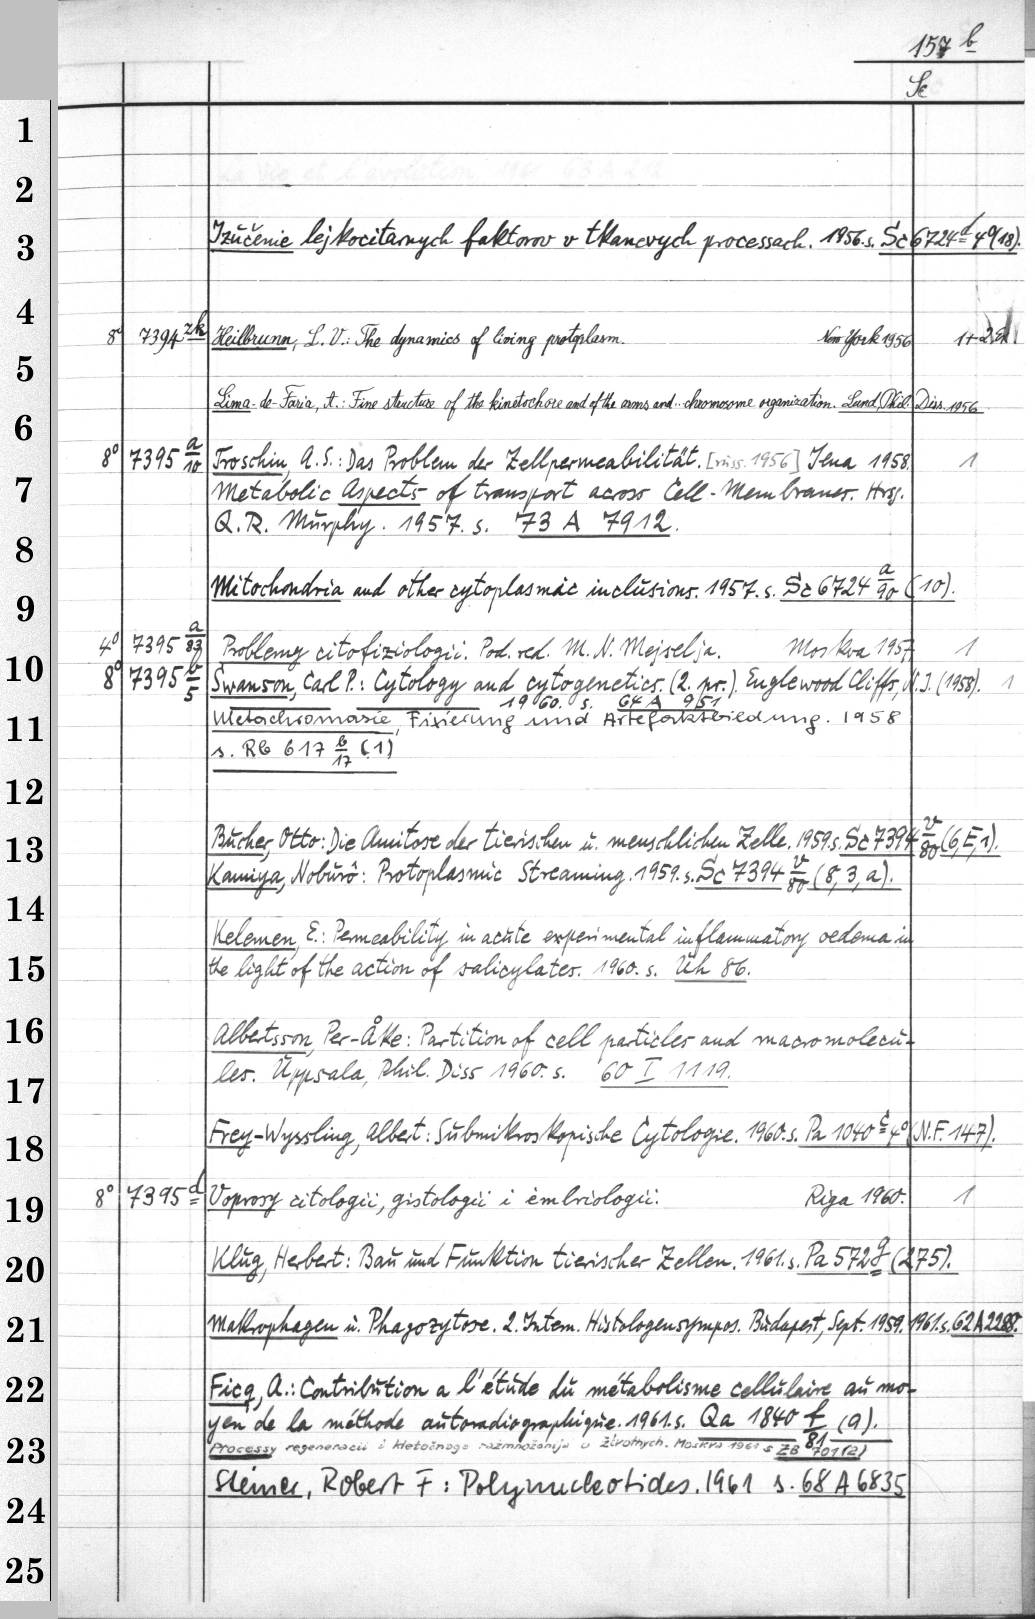 157 b
Sc
1
2
3 Izučenie lejkocitarnych faktorov v tkanevych processach. 1956. s. Sc 6724 d 4°(18).
4
8° 7394 zk Heilbrunn, L. V.: The dynamics of living protoplasm. New York 1956 1+
5
Lima-de-Faria, A.: Fine structure of the kinetochore and of the arms and chromosome organization. Lund, Phil. Diss. 1956
6
8° 7395 a/10 Troschin, A. S.: Das Problem der Zellpermeabilität. [russ. 1956] Jena 1958. 1
7 Metabolic Aspects of transport across Cell-Membranes. Hrsg.
Q. R. Murphy. 1957. s. 73 A 7912.
8
9 Mitochondria and other cytoplasmic inclusions. 1957. s. Sc 6724 a/90 (10).
4° 7395 a/83 Problemy citofiziologii. Pod. red. M. N. Mejselja. Moskva 1957 1
10 8° 7395 b/5 Swanson, Carl P.: Cytology and cytogenetics. (2. pr.). Englewood Cliffs, N. J. (1958). 1
1960. s. 64 A 951
11 Metachromasie, Fixierung und Artefaktbildung. 1958
s. Rb 617 b/17 (1)
12
13 Bucher, Otto: Die Amitose der tierischen u. menschlichen Zelle. 1959. s. Sc 7394 v/80 (6, E, 1).
Kamiya, Noburô: Protoplasmic Streaming. 1959. s. Sc 7394 v/80 (8, 3, a).
14
Kelemen, E.: Permeability in acute experimental inflammatory oedema in
15 the light of the action of salicylates. 1960. s. Uh 86.
16 Albertsson, Per-Åke: Partition of cell particles and macromolecu-
17 les. Uppsala, Phil. Diss 1960. s. 60 I 1119.
18 Frey-Wyssling, Albert: Submikroskopische Cytologie. 1960. s. Pa 1040 c 4° (N.F. 147).
19 8° 7395 d Voprosy citologii, gistologii i ėmbriologii. Riga 1960. 1
20 Klug, Herbert: Bau und Funktion tierischer Zellen. 1961. s. Pa 572 g (275).
21 Makrophagen u. Phagozytose. 2. Intern. Histologensympos. Budapest, Sept. 1959. 1961. s. 62 A 2288.
22 Ficq, A.: Contribution a l'étude du métabolisme cellulaire au mo-
yen de la méthode autoradiographique. 1961. s. Qa 1840 f/81 (9).
23 Processy regeneracii i kletočnogo razmnoženija u životnych. Moskva 1961 s ZB 701(2)
Steiner, Robert F: Polynucleotides. 1961 s. 68 A 6835
24
25